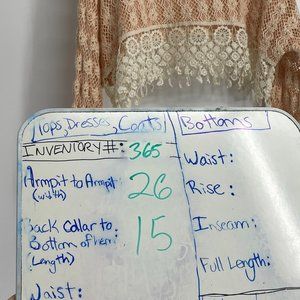 Tops, Dresses, Coats
INVENTORY #: 365
Armpit to Armpit
(width)
26
Back Collar to
Bottom of Hem
(Length)
15
Waist:
Bottoms
Waist:
Rise:
Inseam:
Full Length: